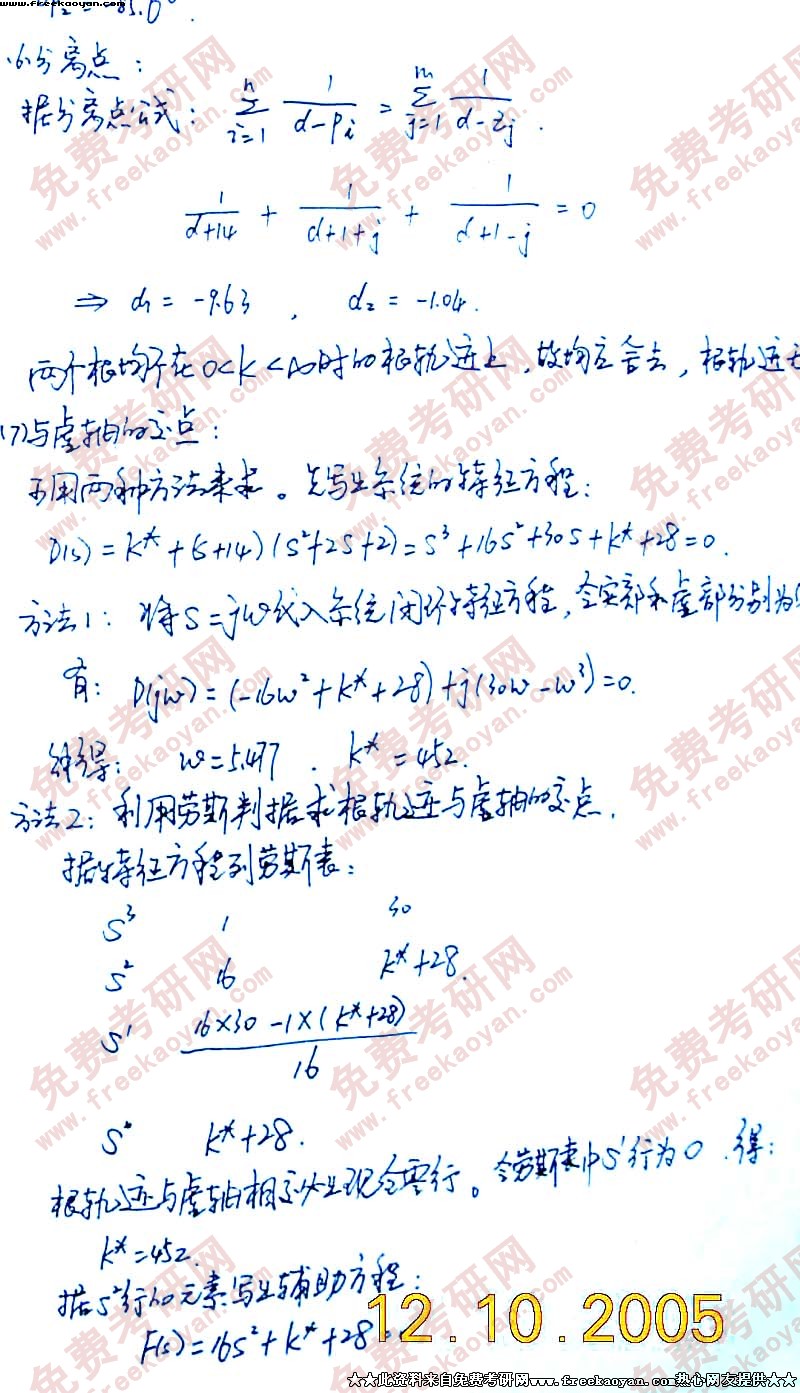 www.freekaoyan.com
= -85.0°.
(6)分离点:
据分离点公式: \sum_{i=1}^{n} \frac{1}{d-p_i} = \sum_{j=1}^{m} \frac{1}{d-z_j}.
\frac{1}{d+14} + \frac{1}{d+1+j} + \frac{1}{d+1-j} = 0
⇒ d₁ = -9.63 , d₂ = -1.04.
两个根均不在0<K<∞时的根轨迹上,故均应舍去,根轨迹无
(7)与虚轴的交点:
可用两种方法来求。先写出系统的特征方程:
D(s) = K* + (s+14)(s²+2s+2) = s³+16s²+30s+K*+28=0.
方法1: 将s=jw代入系统闭环特征方程,令实部和虚部分别为
有: D(jw) = (-16w²+K*+28)+j(30w-w³)=0.
解得: w=5.477 . K*=452.
方法2: 利用劳斯判据求根轨迹与虚轴的交点.
据特征方程列劳斯表:
s³ 1 30
s² 16 K*+28.
s¹ \frac{16×30-1×(K*+28)}{16}
s⁰ K*+28.
根轨迹与虚轴相交必出现全零行。令劳斯表中s¹行为0.得:
K*=452.
据s²行的元素写出辅助方程:
F(s)=16s²+K*+28=0
12.10.2005
★★此资料来自免费考研网www.freekaoyan.com热心网友提供★★
免费考研网
www.freekaoyan.com